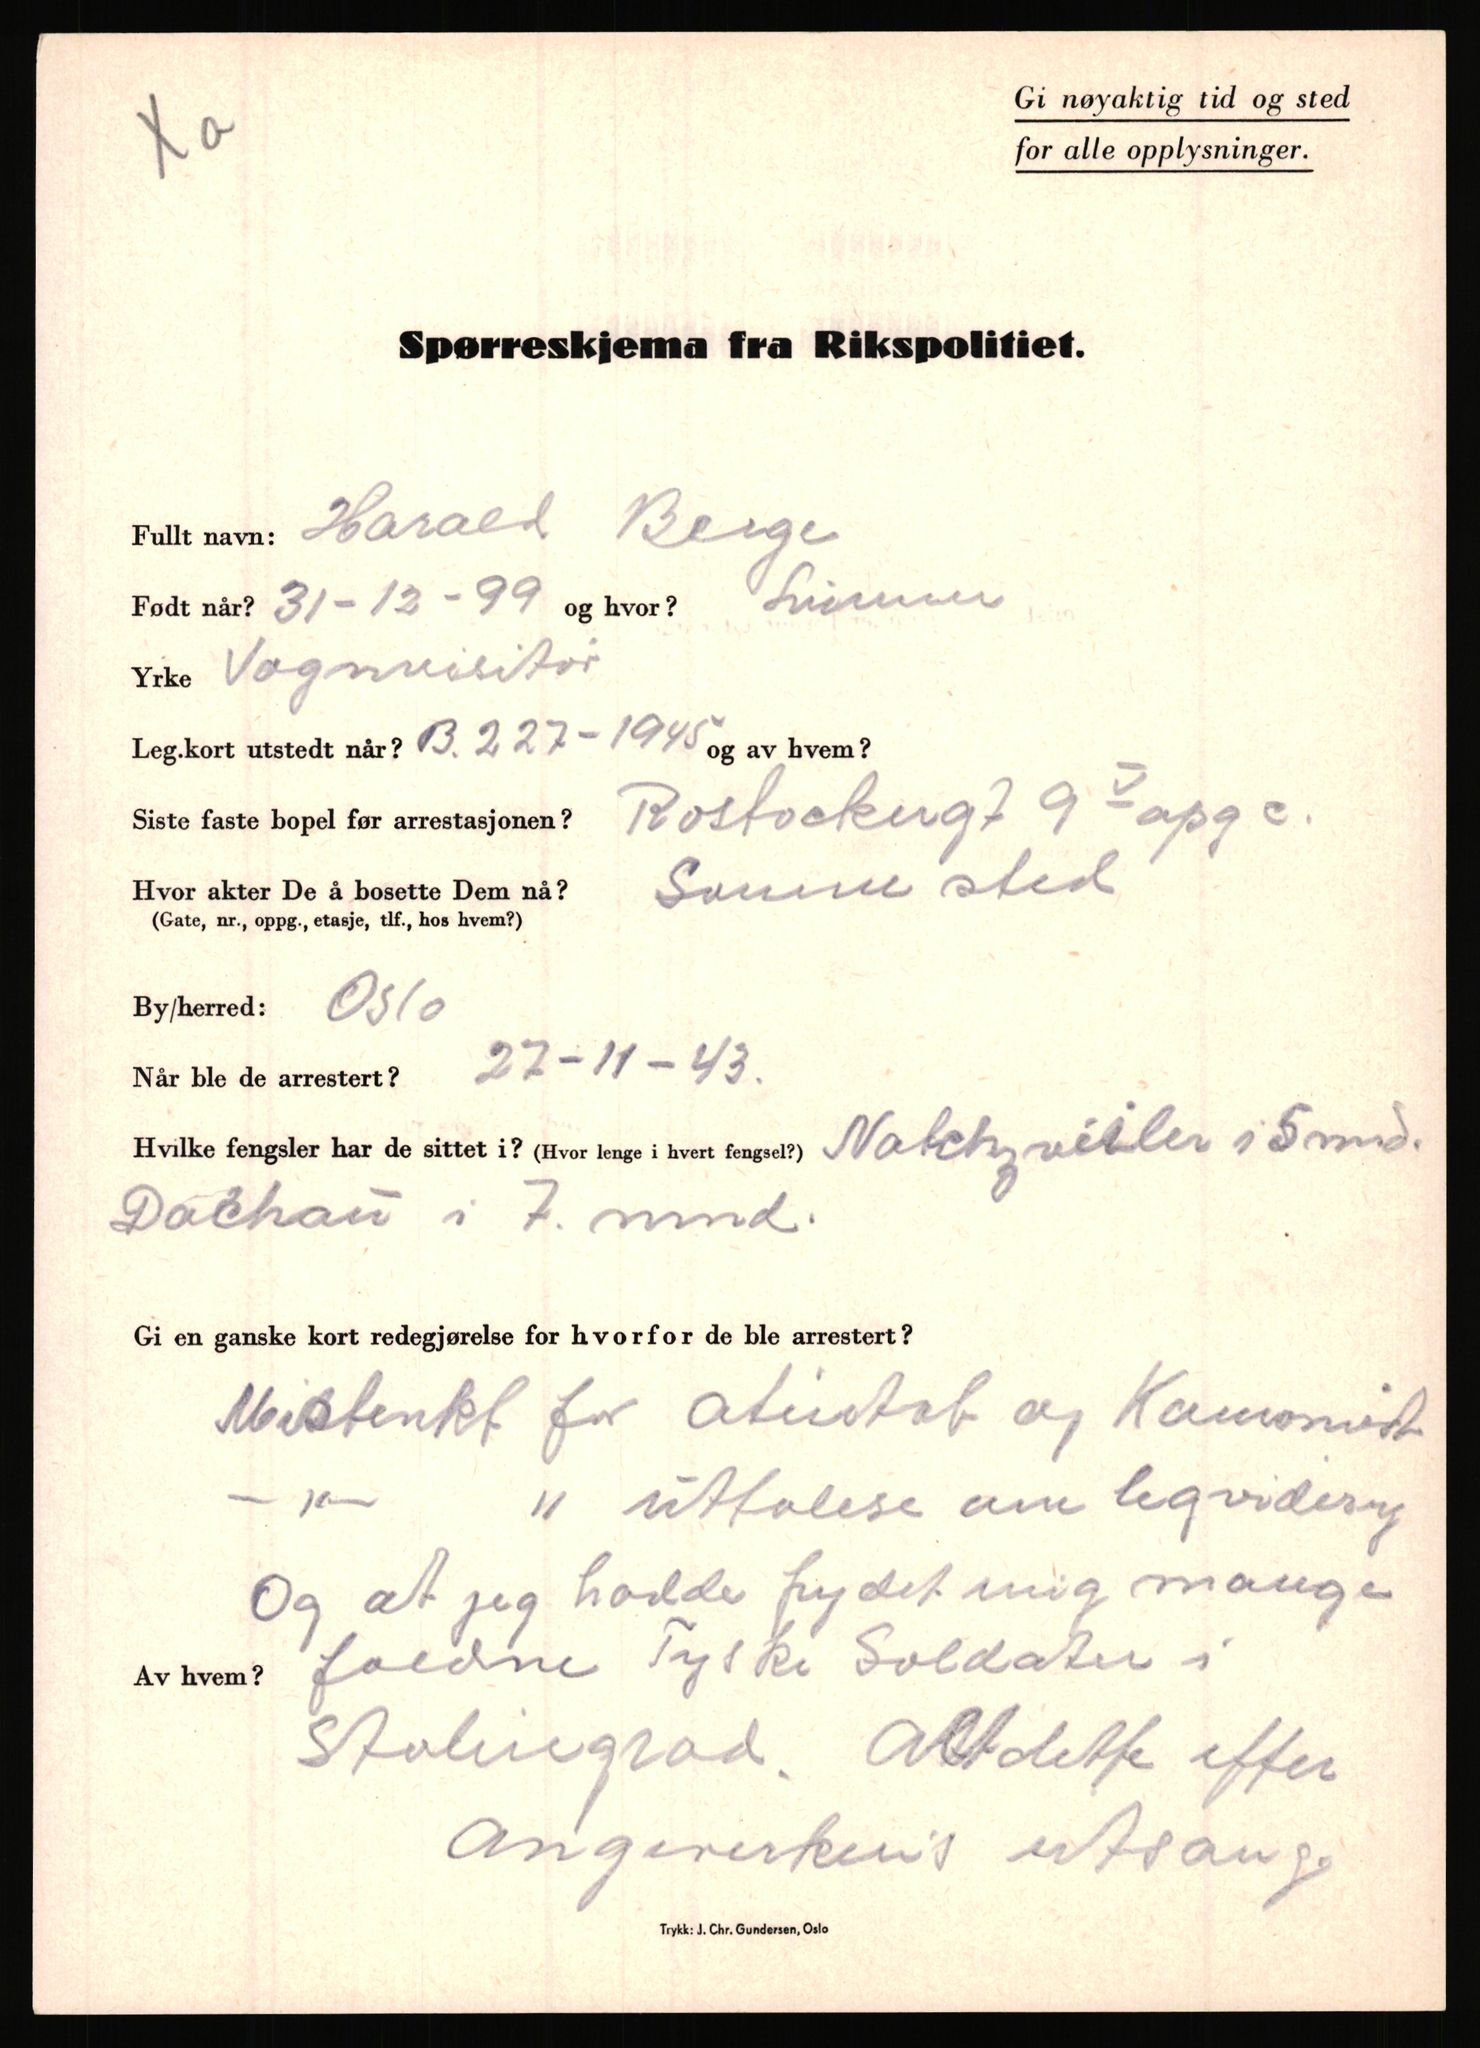 Xa
Gi nøyaktig tid og sted
for alle opplysninger.
Spørreskjema fra Rikspolitiet.
Fullt navn: Harald Berge
Født når? 31-12-99 og hvor?
Yrke Vognvisitør
Leg.kort utstedt når? B. 227-1945 og av hvem?
Siste faste bopel før arrestasjonen? Rostockergt 9 V opg c.
Hvor akter De å bosette Dem nå? Samme sted
(Gate, nr., oppg., etasje, tlf., hos hvem?)
By/herred: Oslo
Når ble de arrestert? 27-11-43.
Hvilke fengsler har de sittet i? (Hvor lenge i hvert fengsel?) Natchzveiler i 5 mnd.
Dachau i 7. mnd.
Gi en ganske kort redegjørelse for hvorfor de ble arrestert?
Mistenkt for og Komonist
— " — " uttalese om leqvidering
Og at jeg hadde frydet mig mange
Av hvem? faldne Tyske Soldater i
Stalingrad. Alt dette efter
Angiverkens utsang.
Trykk: J. Chr. Gundersen, Oslo